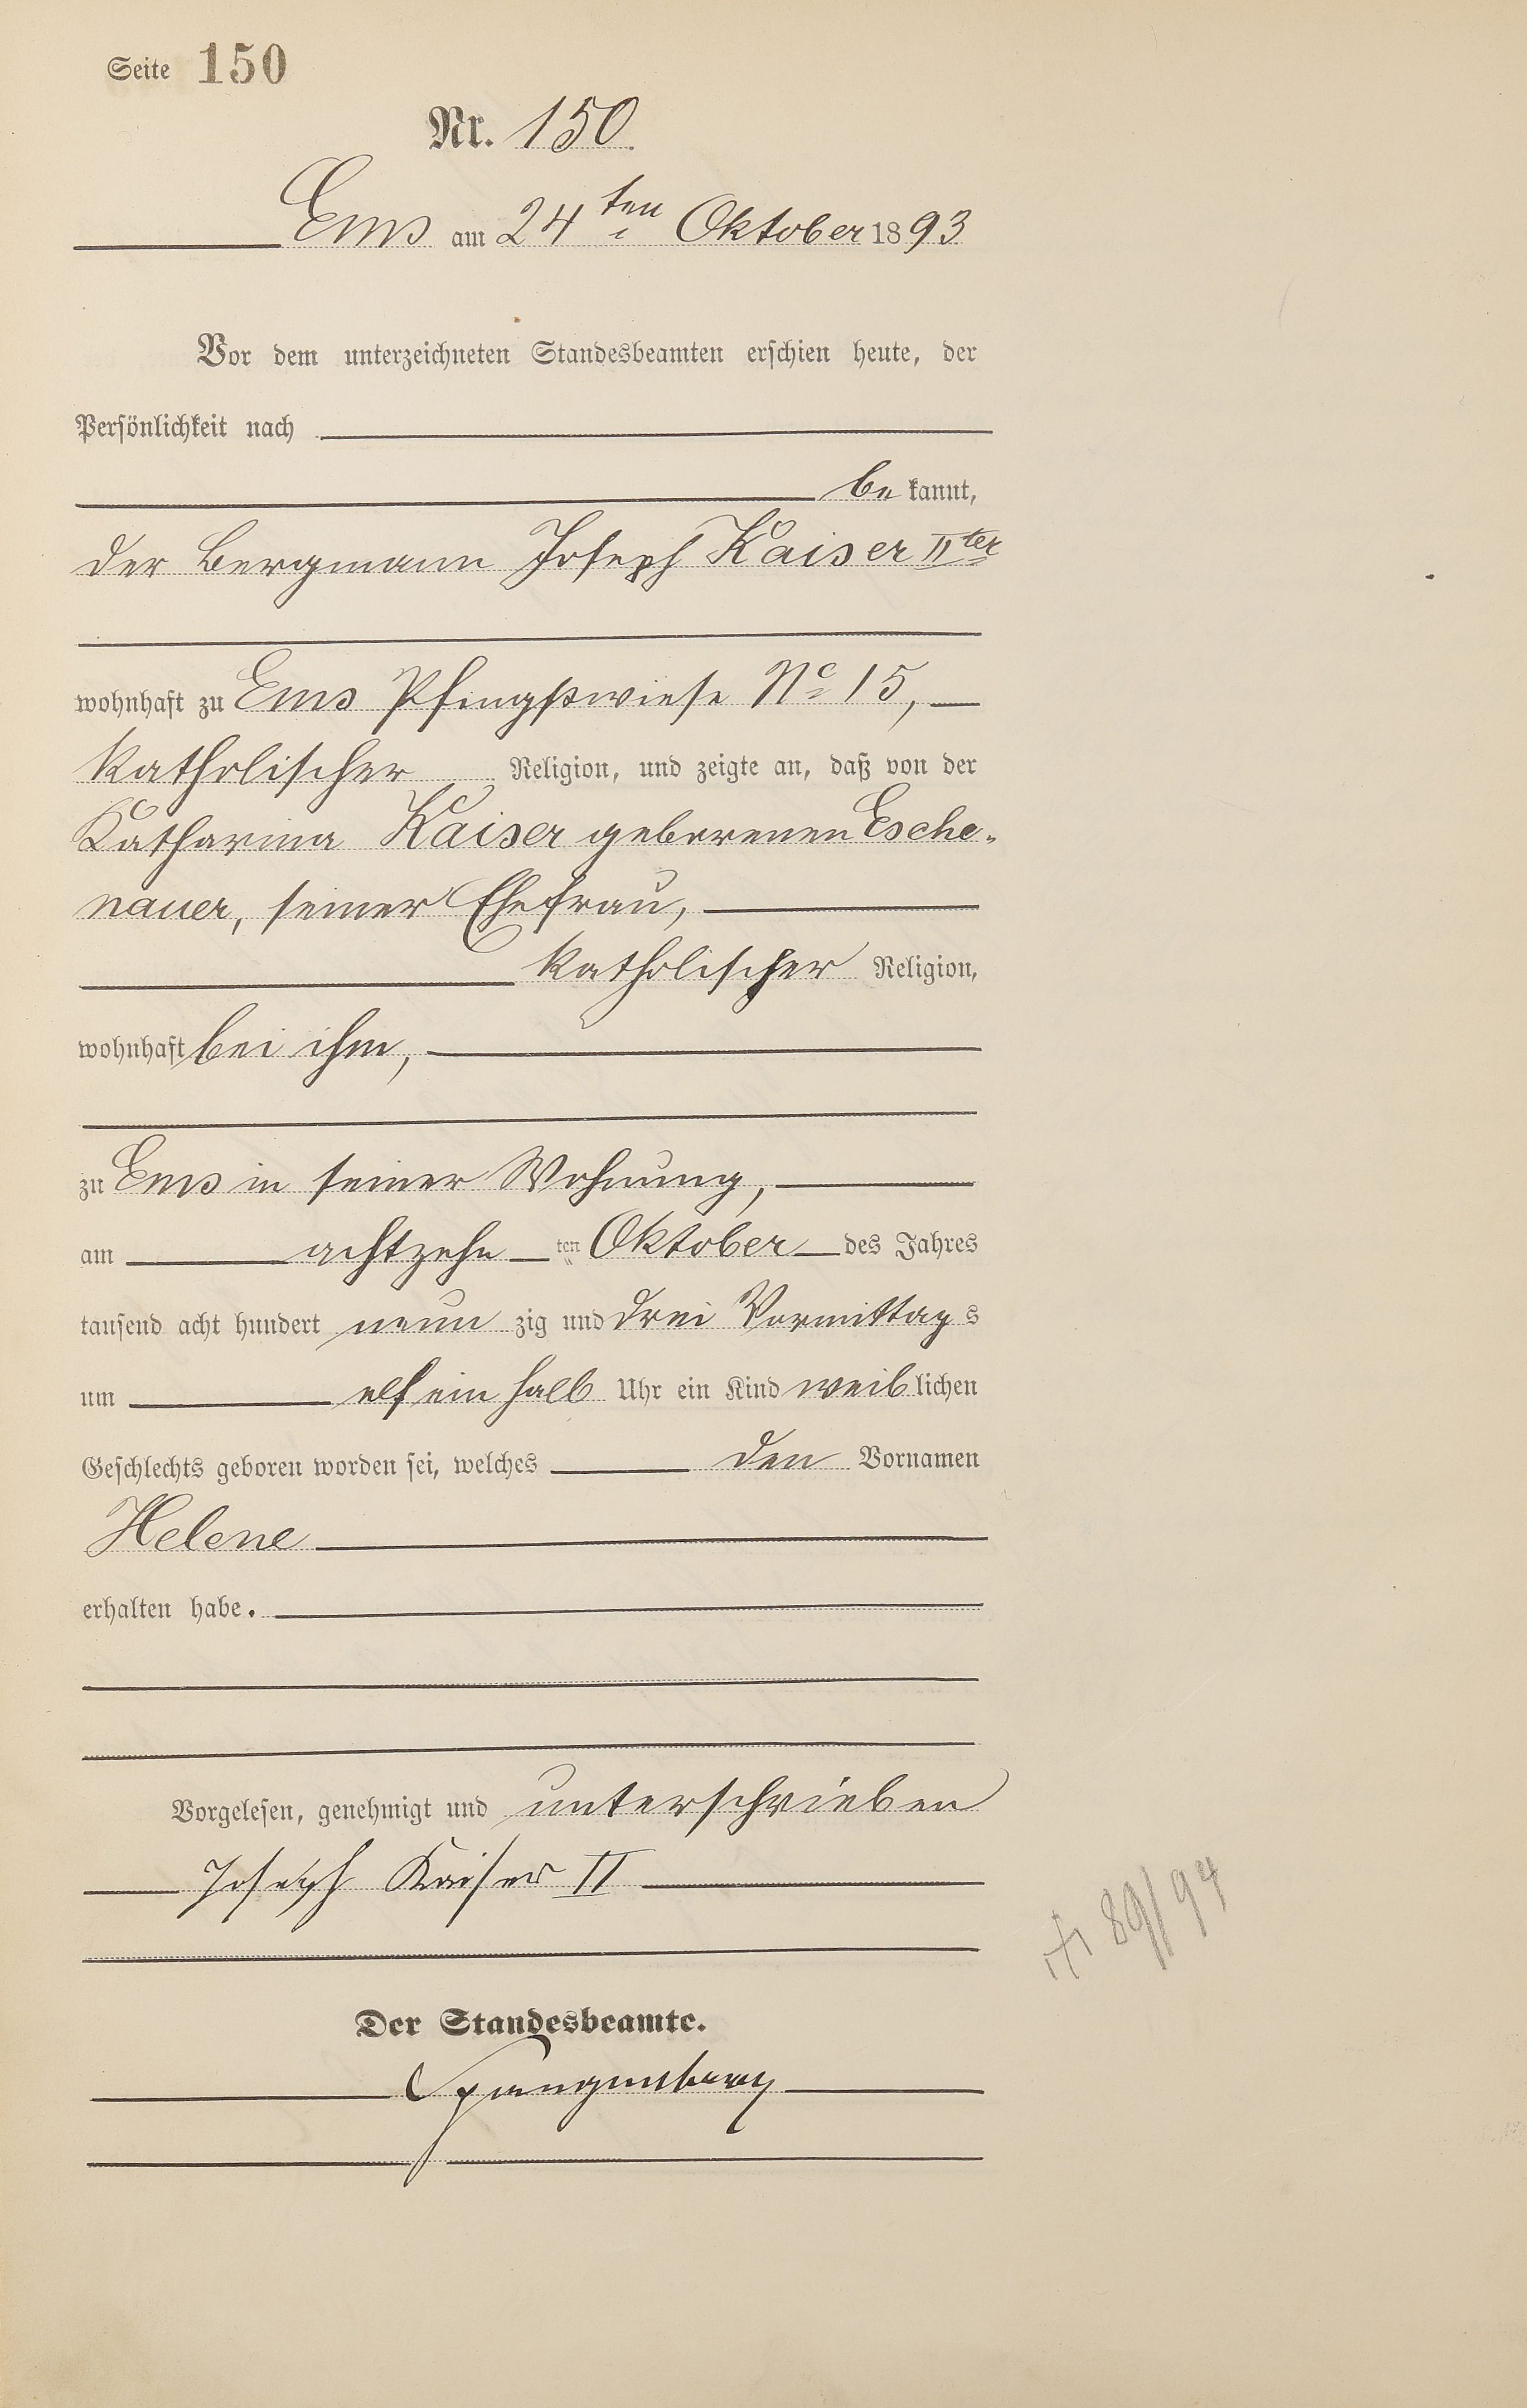 Seite 150
Nr. 150.
Ems am 24ten Oktober 1893
Vor dem unterzeichneten Standesbeamten erschien heute, der
Persönlichkeit nach
be kannt,
der Bergmann Joseph Kaiser IIter
wohnhaft zu Ems Pfingstwiese No 15,
katholischer Religion, und zeigte an, daß von der
Katharina Kaiser geborenen Esche-
nauer, seiner Ehefrau,
katholischer Religion,
wohnhaft bei ihm,
zu Ems in seiner Wohnung,
am achtzehn ten Oktober des Jahres
tausend acht hundert neun zig und drei Vormittag s
um elf ein halb Uhr ein Kind weib lichen
Geschlechts geboren worden sei, welches den Vornamen
Helene
erhalten habe.
Vorgelesen, genehmigt und unterschrieben
Joseph Kaiser II
89/94
Der Standesbeamte.
Spangenberg